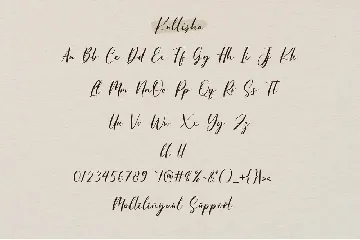 Kallisha
Aa Bb Cc Dd Ee Ff Gg Hh Ii Jj Kk
Ll Mm Nn Oo Pp Qq Rr Ss Tt
Uu Vv Ww Xx Yy Zz
0123456789 !@#$%&*()_+{}><
Multilingual Support